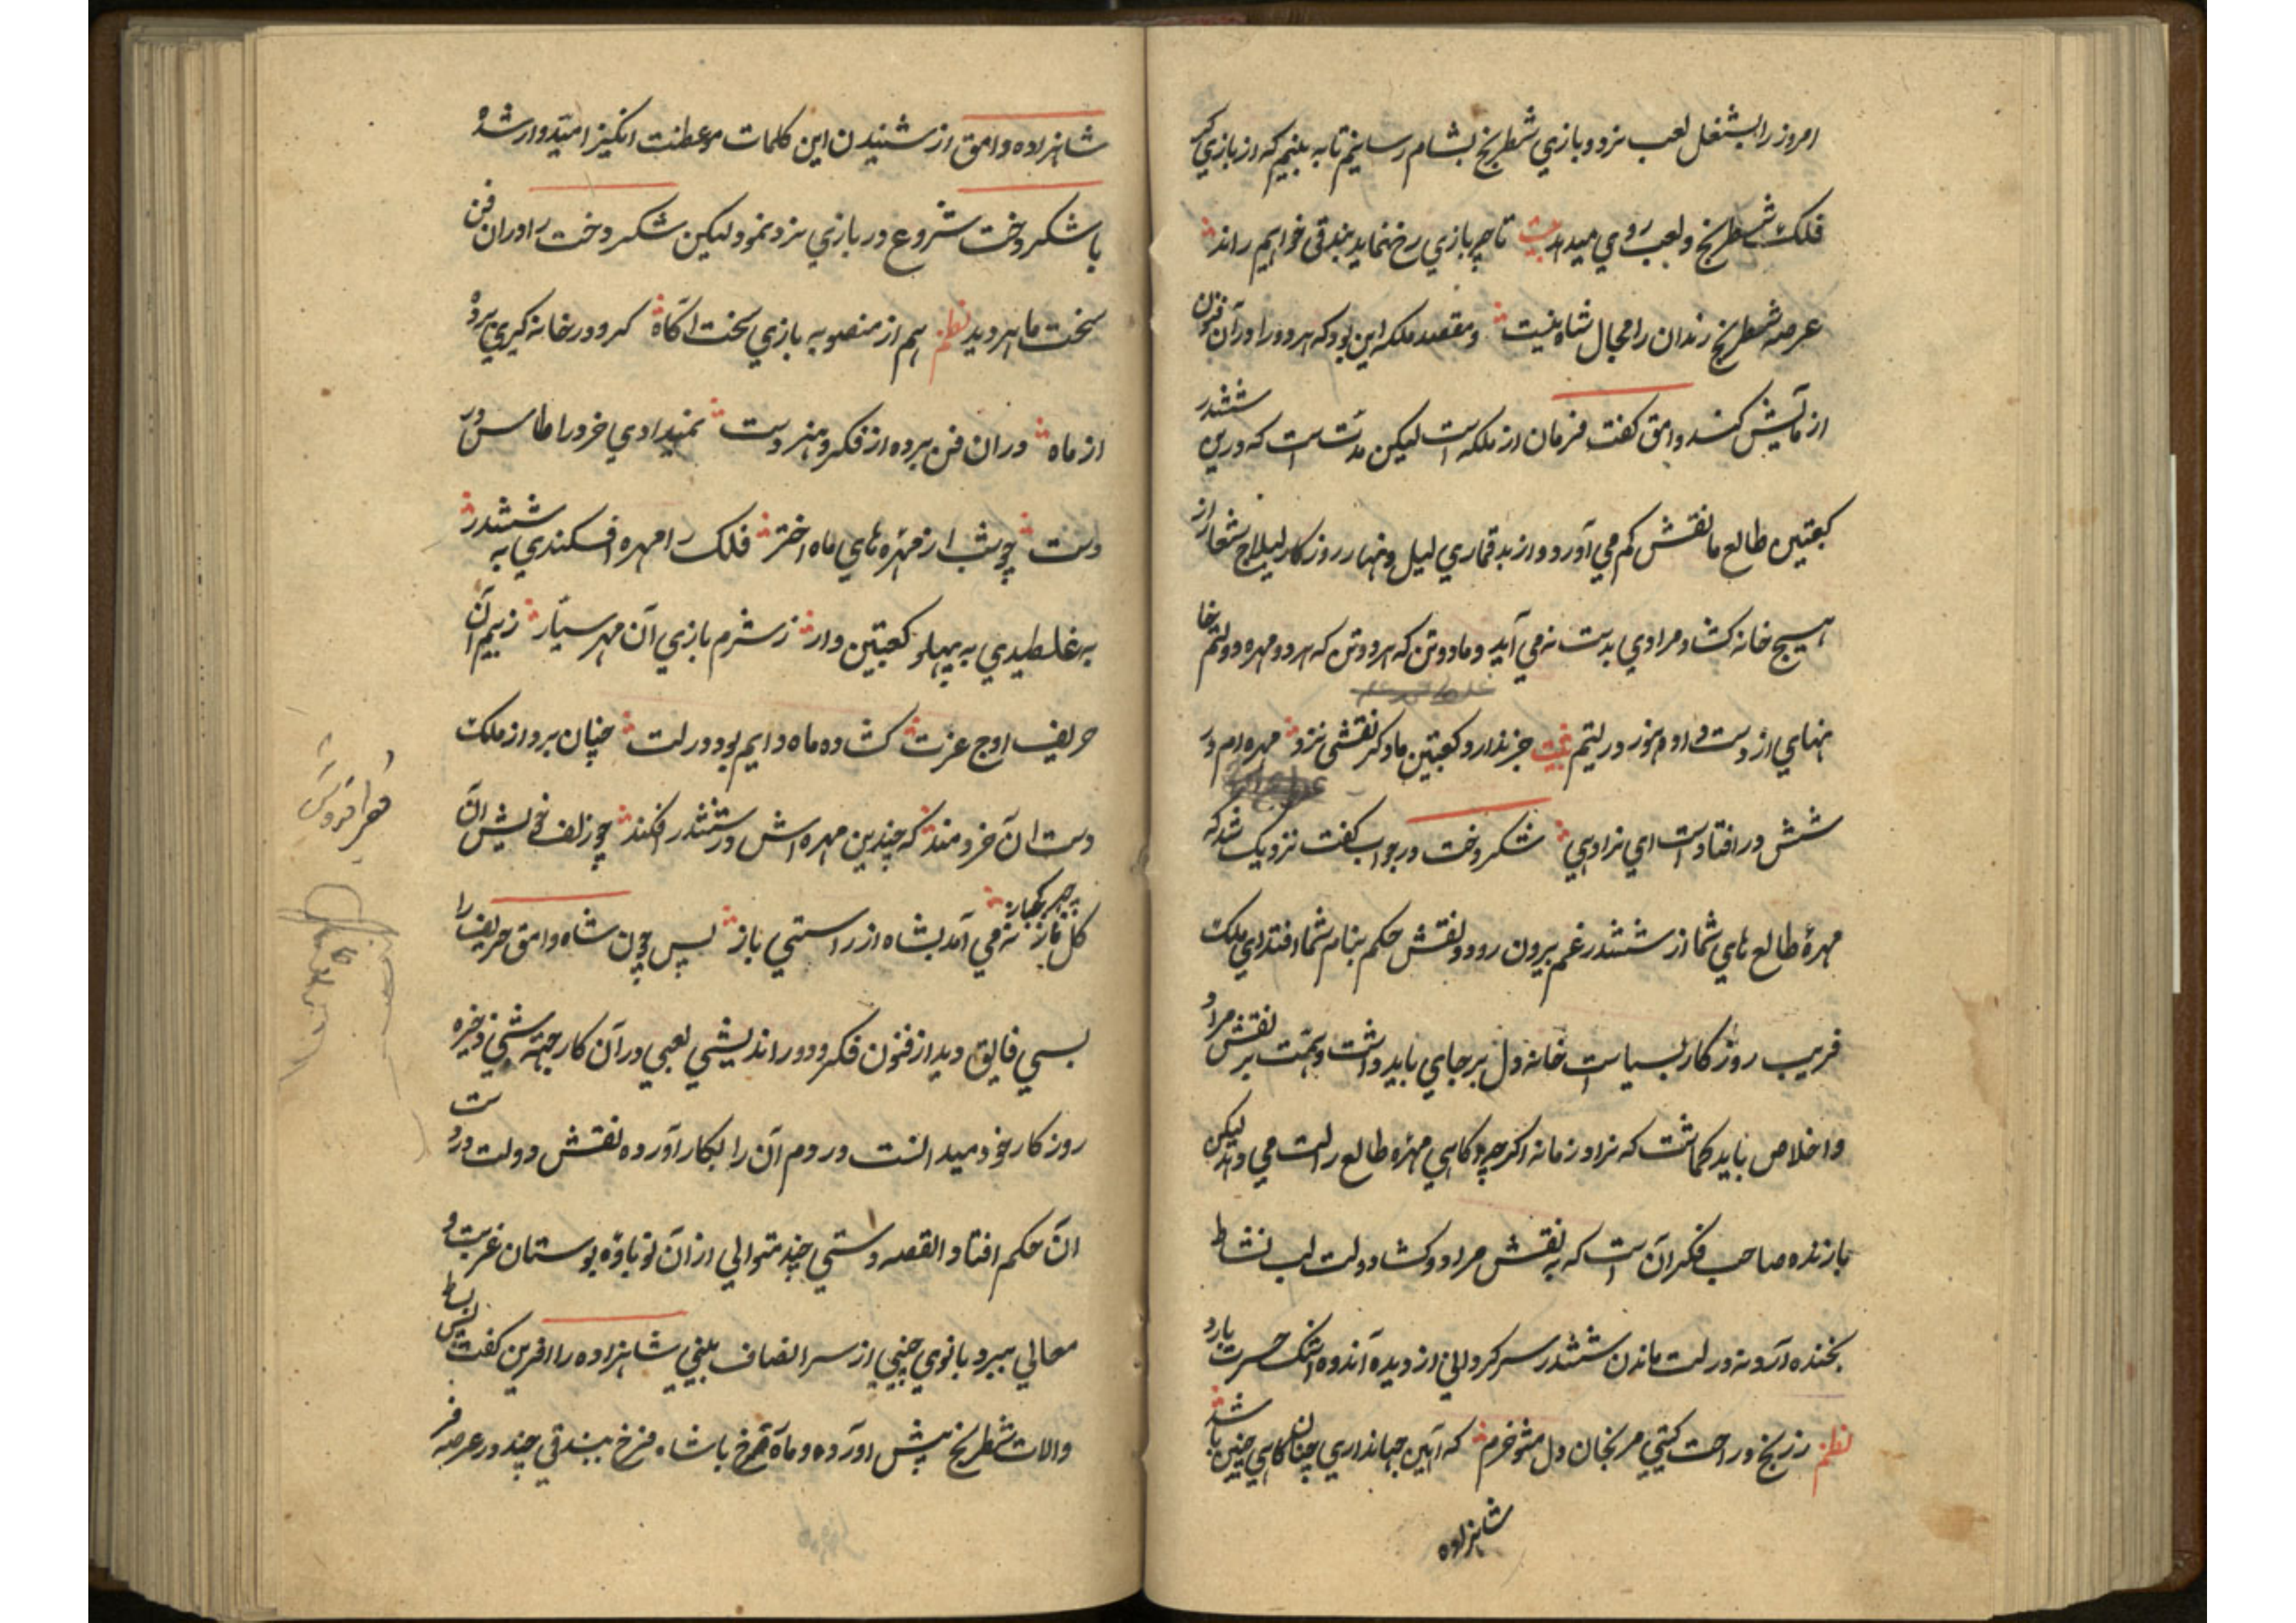 امروز را بشغل لعب نرد و بازي شطرنج بشام رسانیم تا به بینیم که از بازي
فلک شطرنج و لعب روي میدهد بیت تا چه بازي رخ نماید بیدقی خواهیم راند
عرصه شطرنج رندان را مجال شاه نیست و مقصد ملکه این بود که هر دو را در آن فنون
ازمایش کند وامق کفت فرمان از ملکه است لیکن مدّت است که درین ششدر
کعبتین طالع ما نقش کم می آورد و از بد قماري لیل و نهار روزکار لیلاج شعار از
هیچ خانه کشاد مرادي بدست نه می آید و ما دو تن که هر دو تن که هر دو مهره دولتم خا
نهاي از دست داده هنوز در لتیم بیت جز ندارد کعبتین ما دکر نقشی نرد مهره ام در
شش در افتادست اي نراد پي شکر دخت در جواب کفت نزدیک شد که
مهرهٔ طالع هاي شما از ششدر غم بیرون رود و نقش حکم بنام شما افتد اي ملک
فریب روزکار بسیار است خانه دل بر جاي باید داشت و همّت بر نقش مراد
و اخلاص باید کماشت که نراد زمانه اکر چه کاهي مهره طالع را لت می دهد لیکن
بازنده صاحب فکر آن است که به نقش مراد و کشاد دولت لب نشاط
بخنده آرد نه در لت ماندن ششدر سرکردانی از دیده اندوه اشک حسرت بارد
نظم ز رنج و راحت کیتي مرنجان دل مشو خرم که آیین جهانداري چنان کاهي چنین باشد
شاهزاده
شاهزاده وامق از شنیدن این کلمات موعظت انکیز امیدوار شده
با شکر دخت شروع در بازي نرد نمود لیکن شکر دخت را در ان فن
سخت ماهر دید نظم هم از منصوبه بازي سخت اکاه کرو در خانه کیري برده
از ماه در ان فن برده از فکر و هنر دست نمیدادي خرد را طاس در
دست چو شب از مهره هاي ماه اختر فلک را مهره افکندي به ششدر
به غلطیدي به پهلو کعبتین وار ز شرم بازي آن مهر سیّار ز بیم آن
حریف اوج عزت کشاده ماه دایم بود در لت چنان برد از ملک
دست ان خردمند که چندین مهره اش در ششدر افکند چو زلف خویش آن
کل ناز پرچهر یکبار نه می آمد بشاه از راستي باز پس چون شاه وامق حریف را
بسي فایق دید از فنون فکر و دور اندیشي لعبي در آن کار جهة شي ذخیره
روزکار خود میدانست در دم آن را بکار آورده نقش دولت در دست
ان حکم افتاد القصه دستي چند متوالي از آن نوباوه بوستان عزت و
معالي ببرد بانوي چین از سر انصاف بیني شاهزاده را افرین کفت پس بساط
و الات شطرنج پیش اورده و ماه رخ با شاه فرخ بیدقي چند در عرصه فر